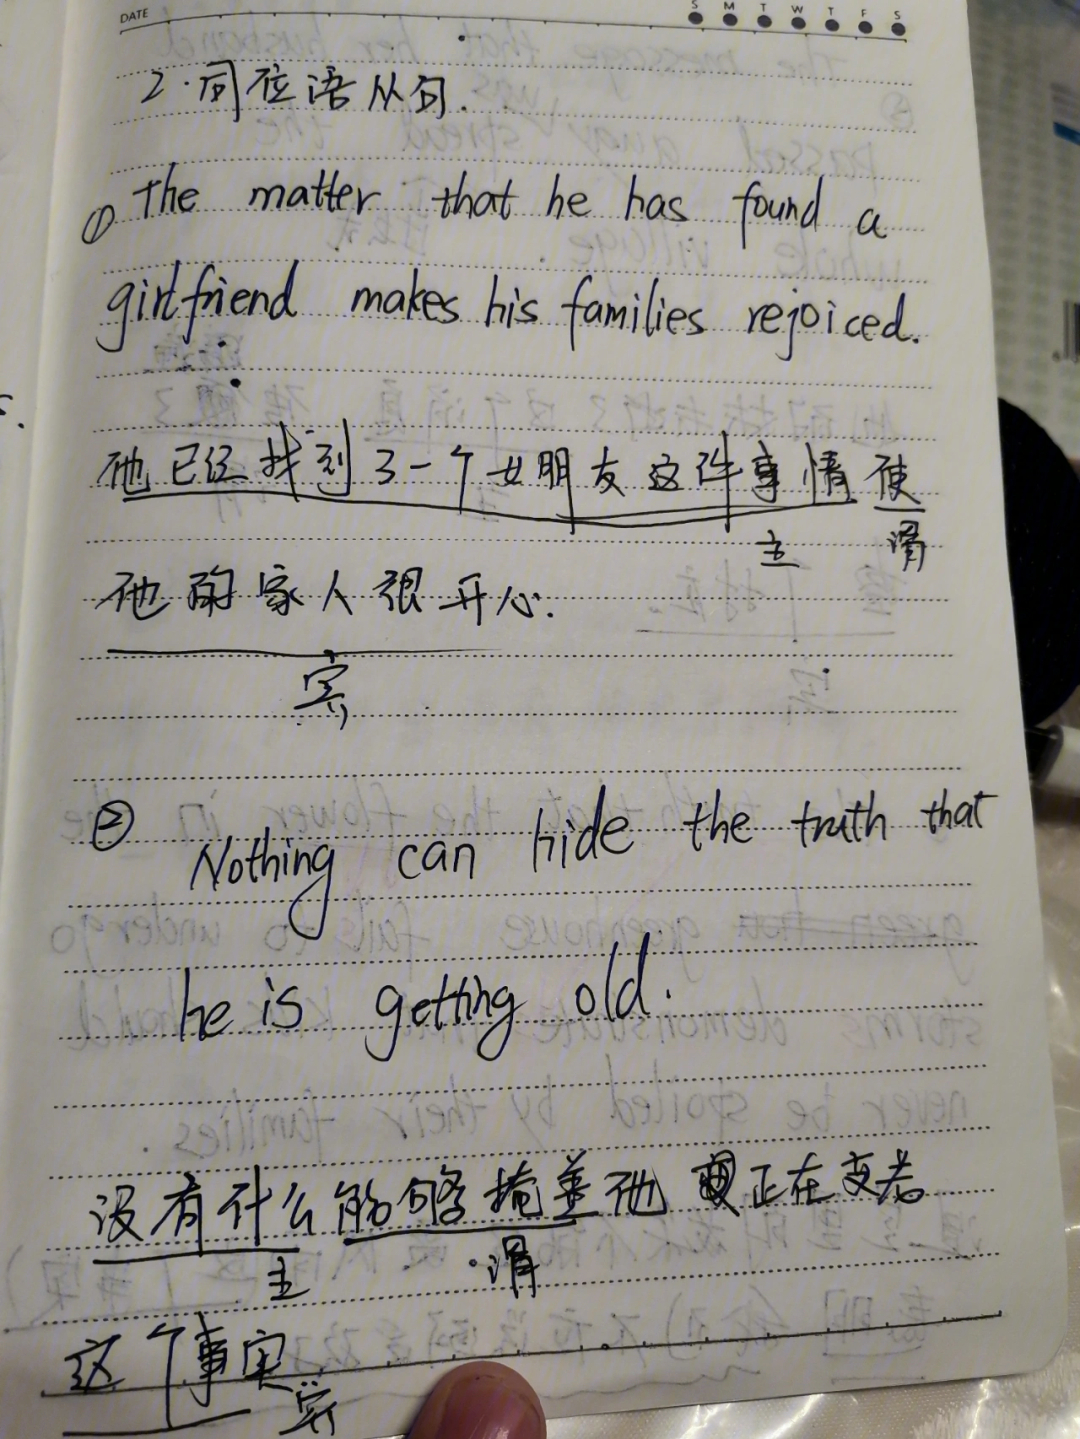 DATE
S M T W T F S
2.同位语从句.
① The matter that he has found a
girlfriend makes his families rejoiced.
他已经找到了一个女朋友这件事情使
主 谓
他的家人很开心.
宾
② Nothing can hide the truth that
he is getting old.
没有什么能够掩盖他正在变老
主 谓
这个事实
宾